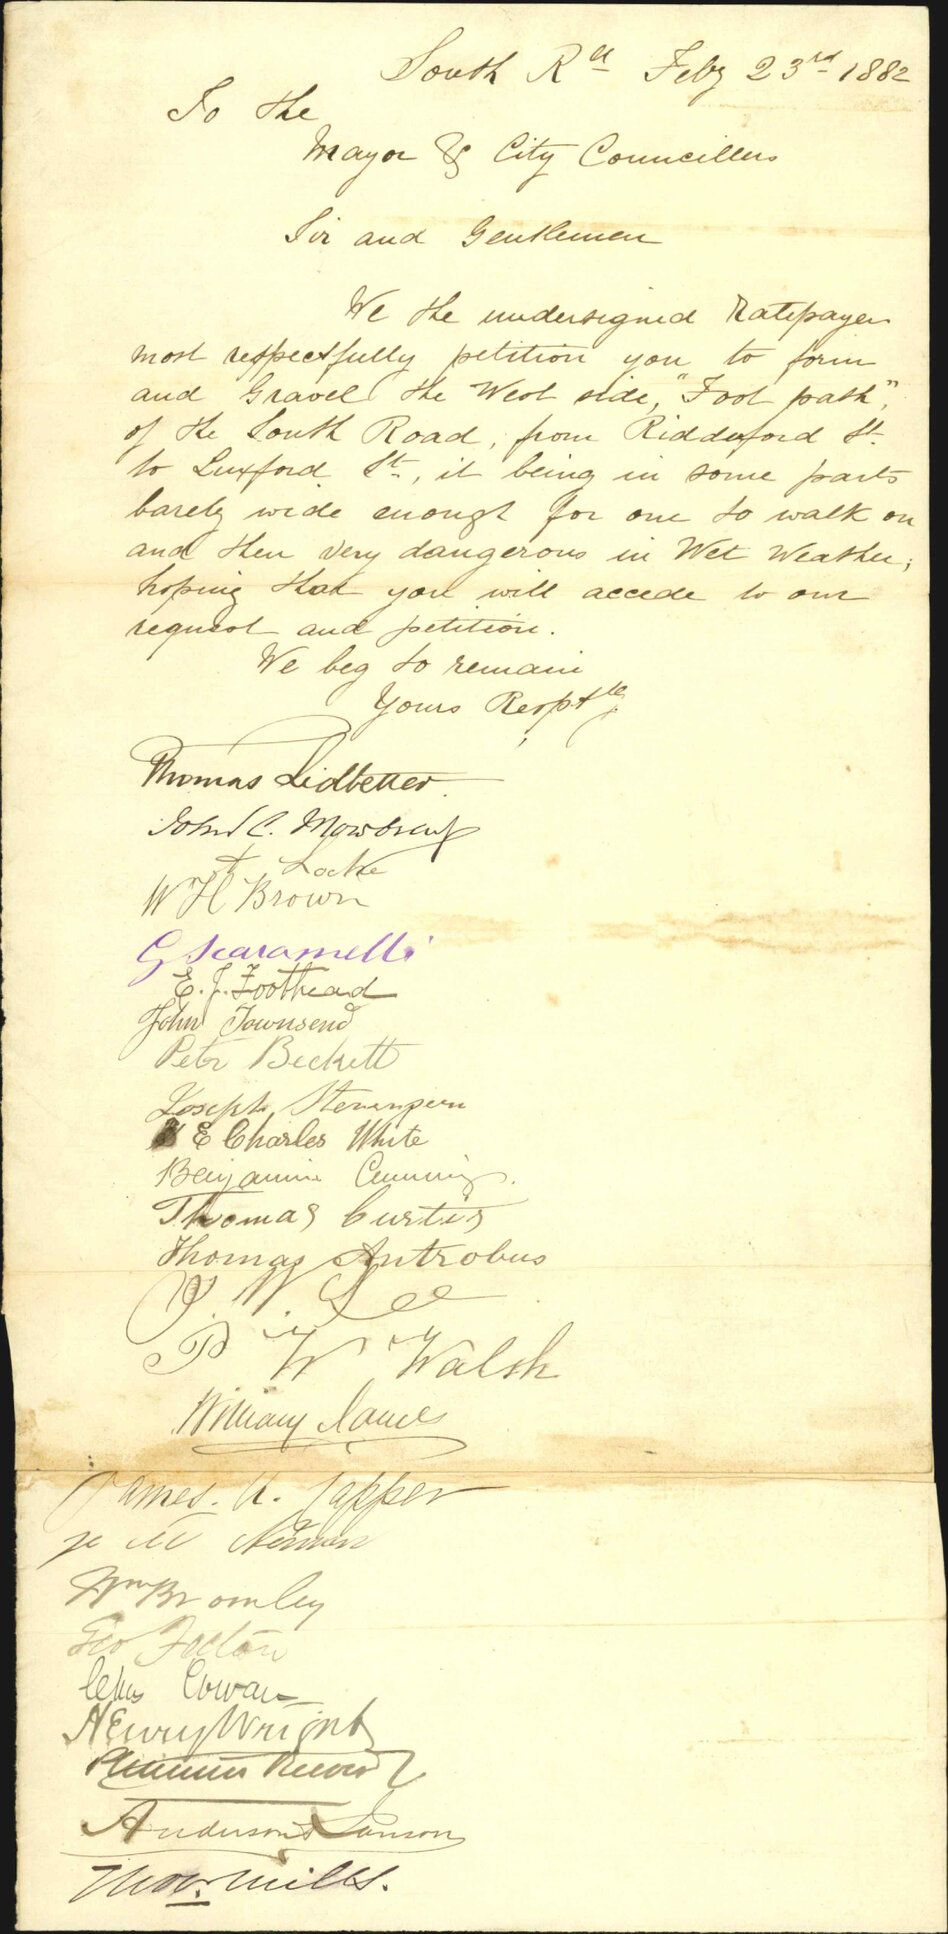 South Rd Feby 23rd 1882
To the
Mayor & City Councillers
Sir and Gentlemen
We the undersigned Ratepayers
most respectfully petition you to form
and Gravel the West side, "Foot path",
of the South Road, from Riddeford St.
to Luxford St, it being in some parts
barely wide enough for one to walk on
and then very dangerous in Wet Weather;
hoping that you will accede to our
request and petition.
We beg to remain
Yours Resptflly
Thomas Lidbetter
John C. Mowbray
A Locke
W H Brown
G Scaramelli
E. J. Foothead
John Townsend
Petr Beckett
Joseph
E Charles White
Benjamin Cumming
Thomas Curtis
Thomas Antrobus
W. Lee
P W Walsh
William James
James. H. Tapper
Wm Bromley
Geo
Chas Cowan
HEnry Wright
Anderson & Lawson
Thos. Mills.